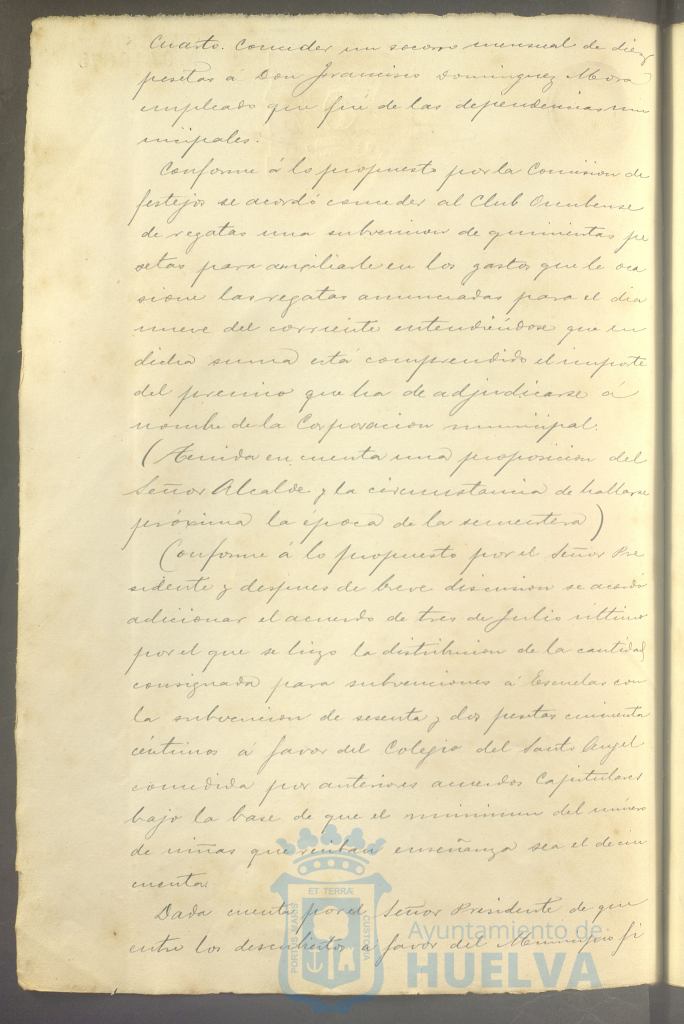 Cuarto. Conceder un socorro mensual de diez
pesetas á Don Francisco Dominguez Mora
empleado que fué de las dependencias mu
nicipales.
Conforme á lo propuesto por la Comision de
festejos se acordó conceder al Club Onubense
de regatas una subvencion de quinientas pe
setas para auxiliarle en los gastos que le oca
sione las regatas anunciadas para el dia
nueve del corriente entendiéndose que en
dicha suma está comprendido el importe
del premio que ha de adjudicarse á
nombre de la Corporacion municipal.
(Tenida en cuenta una proposicion del
Señor Alcalde y la circunstancia de hallarse
próxima la época de la sementera)
Conforme á lo propuesto por el Señor Pre
sidente y despues de breve discusion se acordó
adicionar el acuerdo de tres de Julio último
por el que se hizo la distribucion de la cantidad
consignada para subvenciones á Escuelas con
la subvencion de sesenta y dos pesetas cincuenta
céntimos á favor del Colegio del Santo Angel
concedida por anteriores acuerdos Capitulares
bajo la base de que el minimun del número
de niñas que reciban enseñanza sea el de cin
cuenta.
Dada cuenta por el Señor Presidente de que
entre los descubiertos á favor del Municipio fi
PORTUS MARIS ET TERRÆ CUSTODIA
Ayuntamiento de
HUELVA